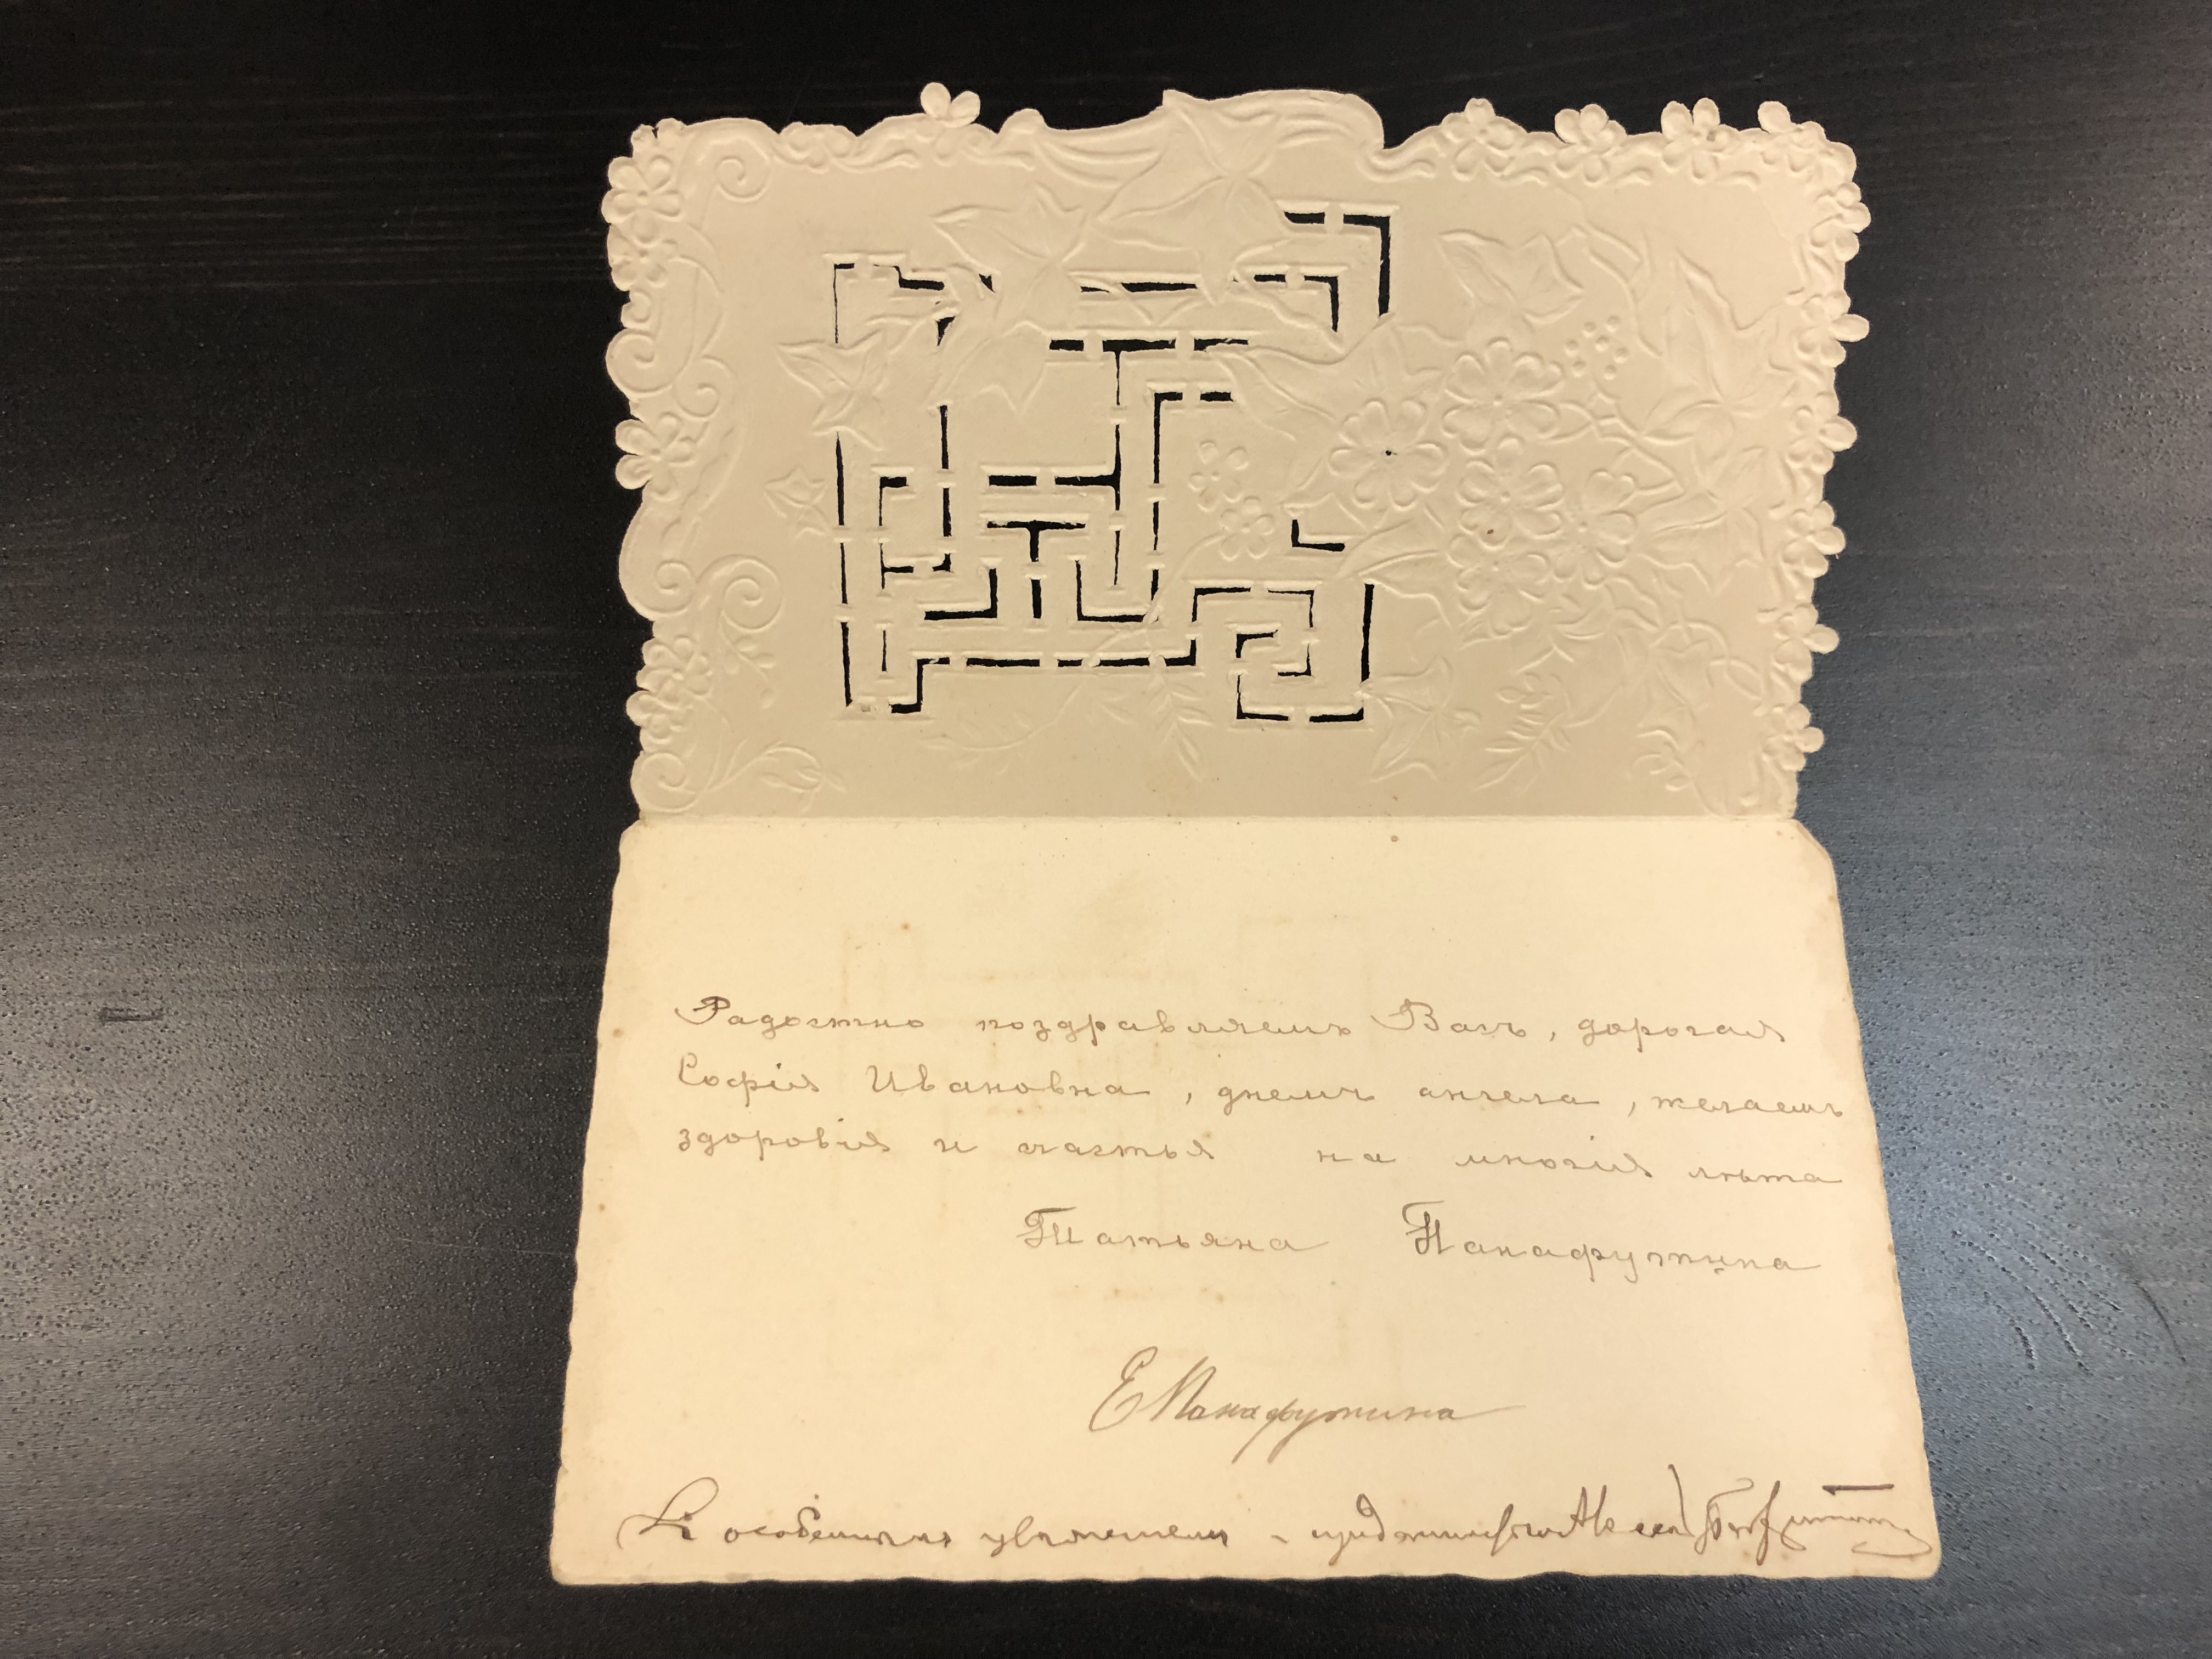 Радостно поздравляемъ Васъ, дорогая
Софія Ивановна, днемъ ангела, желаемъ
здоровія и счастья на многія лѣта
Татьяна Панафутина
Е Панафутина
Съ особеннымъ уваженіемъ